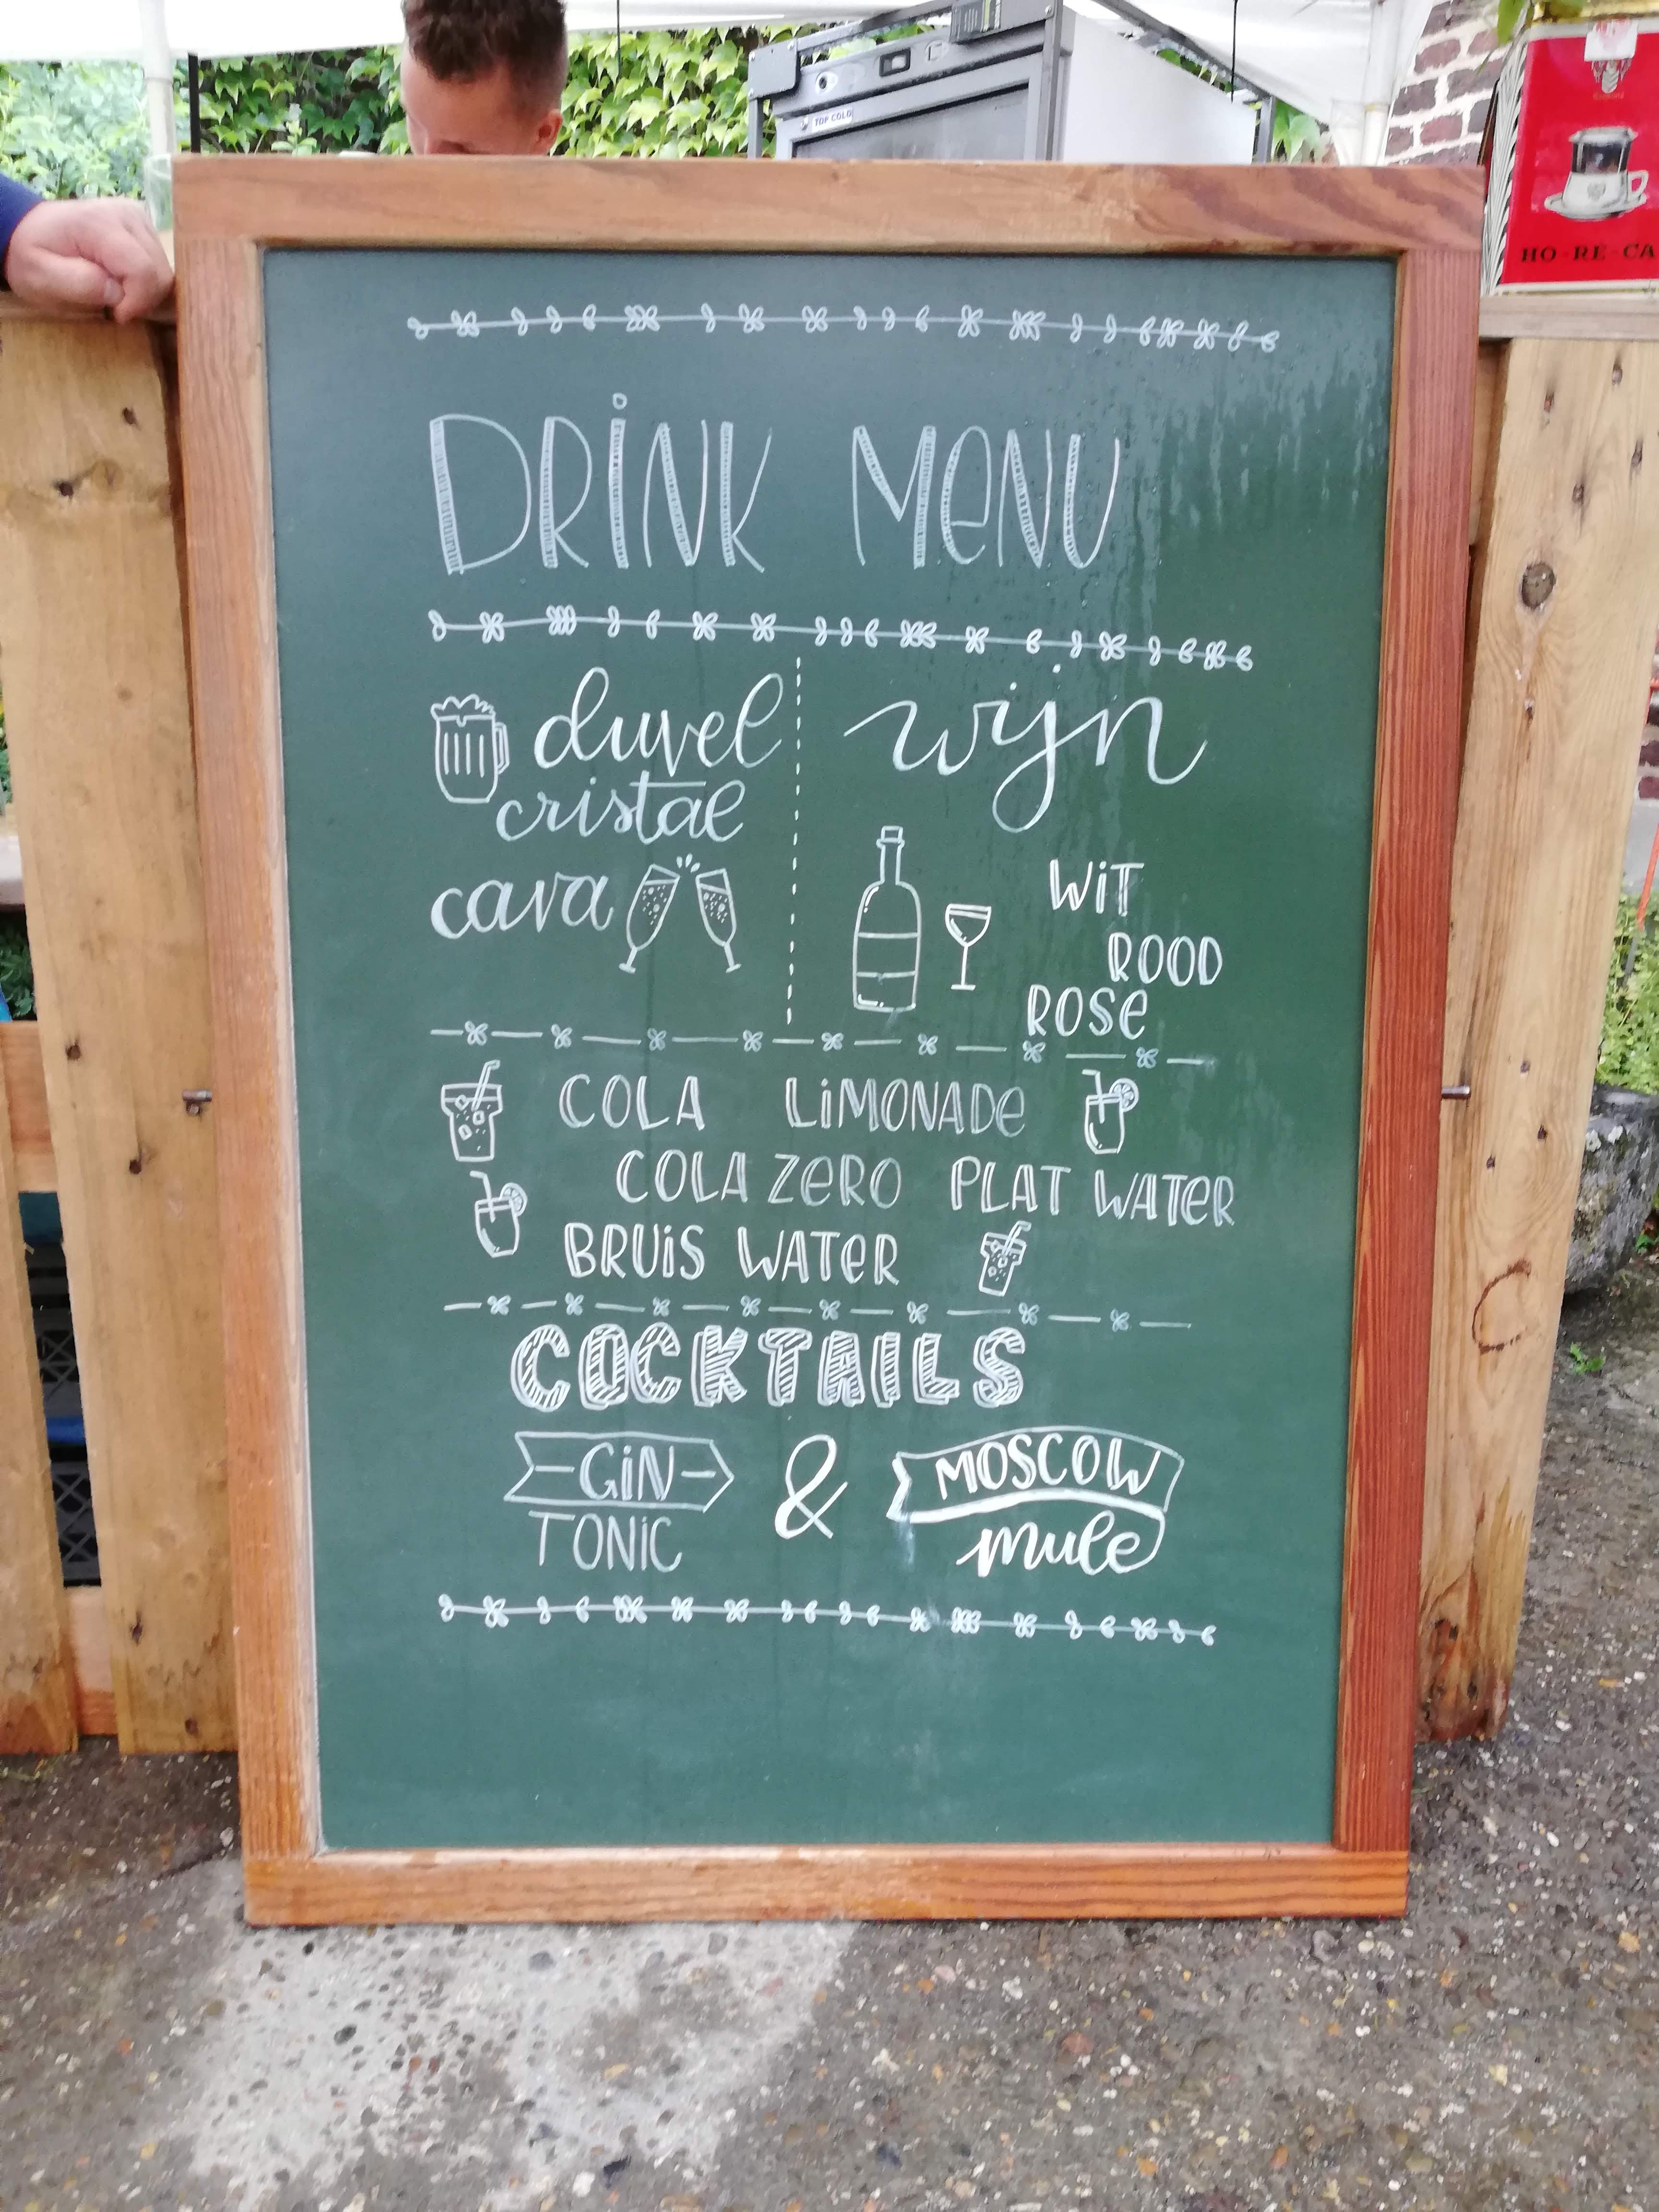 TOP COLD
HO-RE-CA
DRiNK MeNU
duvel
cristal
cava
wijn
WiT
ROOD
ROSe
COLA LiMONADe
COLA ZeRO PLAT WATeR
BRUiS WATeR
COCKTAILS
GiN
TONiC
&
MOSCOW
mule